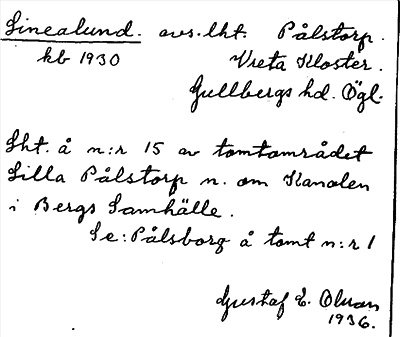 Linealund. avs. lht. Pålstorp.
kb 1930 Vreta Kloster.
Gullbergs hd. Ögl.
Lht. å n:r 15 av tomtområdet
Lilla Pålstorp n. om Kanalen
i Bergs Samhälle.
Se: Pålsborg å tomt n:r 1
Gustaf E. Olson
1936.